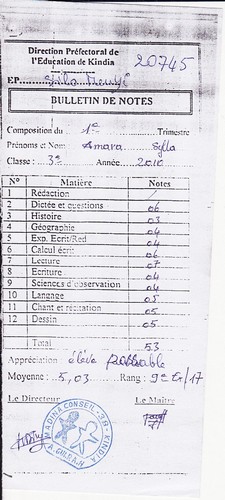 Direction Préfectoral de
l'Education de Kindia
20745
EP
BULLETIN DE NOTES
Composition du 1e Trimestre
Prénoms et Nom: Amara Sylla
Classe: 3e Année 2010
N° Matière Notes
1 Rédaction /
2 Dictée et questions 06
3 Histoire 03
4 Géographie 04
5 Exp. Ecrit/Red 04
6 Calcul écrit 06
7 Lecture 07
8 Ecriture 04
9 Sciences d'observation 04
10 Langage 05
11 Chant et récitation 05
12 Dessin 05
Total 53
Appréciation élève passable
Moyenne: 5,03 Rang: 9e Ex/17
Le Directeur Le Maître
MADINA CONSEIL
KINDIA